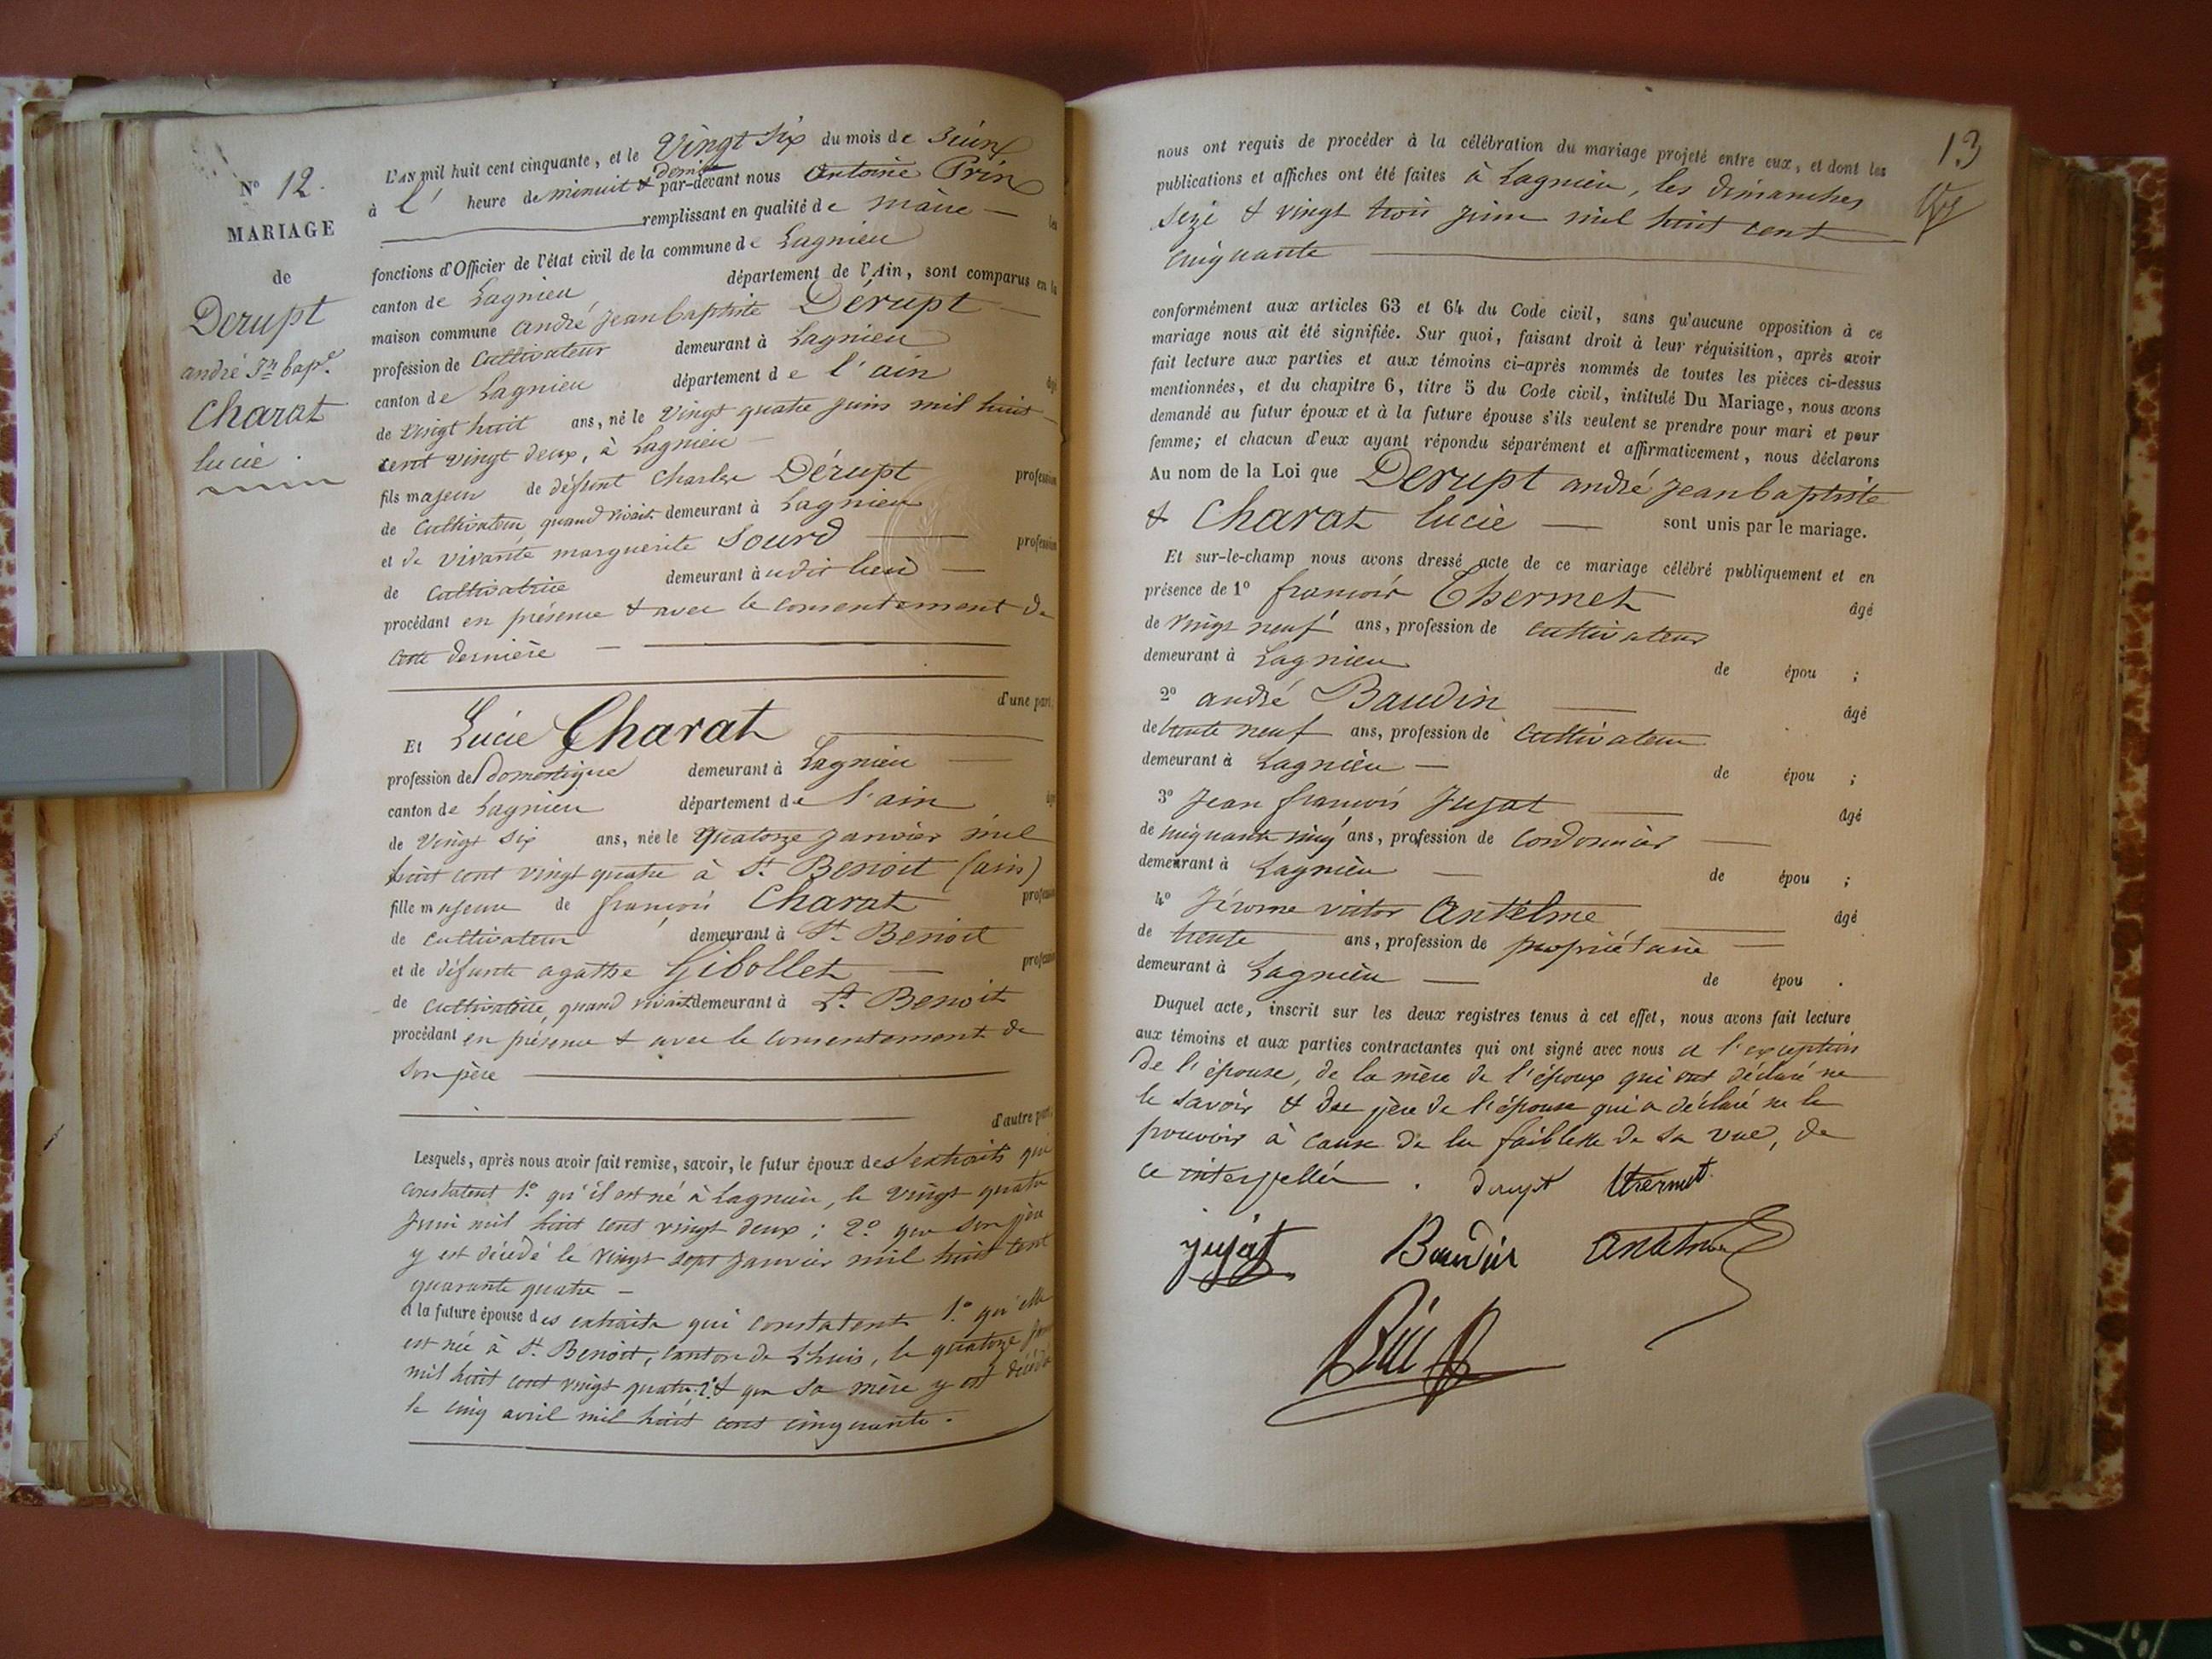 N° 12.
MARIAGE
de
Derupt
andré Jn bapte
Charat
lucie
L'AN mil huit cent cinquante, et le Vingt Six du mois de Juin
à l' heure de minuit & demie par-devant nous Antoine Prin
remplissant en qualité de maire les
fonctions d'Officier de l'état civil de la commune de Lagnieu
canton de Lagnieu département de l'Ain, sont comparus en la
maison commune André Jean baptiste Dérupt
profession de Cultivateur demeurant à Lagnieu
canton de Lagnieu département de l'ain âgé
de vingt huit ans, né le vingt quatre juin mil huit
cent vingt deux, à Lagnieu
fils majeur de défunt Charles Dérupt profession
de Cultivateur, quand vivait demeurant à Lagnieu
et de vivante marguerite Sourd profession
de Cultivatrice demeurant audit lieu
procédant en présence & avec le consentement de
cette dernière
d'une part,
Et Lucie Charat
profession de domestique demeurant à Lagnieu
canton de Lagnieu département de l'ain âgé
de Vingt Six ans, née le Quatorze Janvier mil
huit cent vingt quatre à St. Benoit (ain)
fille majeure de françois Charat profession
de cultivateur demeurant à St. Benoit
et de défunte agathe Gibollet profession
de Cultivatrice, quand vivait demeurant à St. Benoit
procédant en présence & avec le consentement de
son père
d'autre part,
Lesquels, après nous avoir fait remise, savoir, le futur époux des extraits qui
constatent 1° qu'il est né à Lagnieu, le vingt quatre
Juin mil huit cent vingt deux; 2° que son père
y est décédé le vingt sept Janvier mil huit cent
quarante quatre
et la future épouse des extraits qui constatent 1° qu'elle
est née à St. Benoit, canton de Lhuis, le quatorze
mil huit cent vingt quatre; 2° & que sa mère y est décédée
le cinq avril mil huit cent cinquante.
13
nous ont requis de procéder à la célébration du mariage projeté entre eux, et dont les
publications et affiches ont été faites à Lagnieu, les dimanches
seize & vingt trois juin mil huit cent
cinquante
conformément aux articles 63 et 64 du Code civil, sans qu'aucune opposition à ce
mariage nous ait été signifiée. Sur quoi, faisant droit à leur réquisition, après avoir
fait lecture aux parties et aux témoins ci-après nommés de toutes les pièces ci-dessus
mentionnées, et du chapitre 6, titre 5 du Code civil, intitulé Du Mariage, nous avons
demandé au futur époux et à la future épouse s'ils veulent se prendre pour mari et pour
femme; et chacun d'eux ayant répondu séparément et affirmativement, nous déclarons
Au nom de la Loi que Derupt andré jean baptiste
& Charat lucie sont unis par le mariage.
Et sur-le-champ nous avons dressé acte de ce mariage célébré publiquement et en
présence de 1° françois Thermet âgé
de vingt neuf ans, profession de cultivateur
demeurant à Lagnieu de épou ;
2° andré Baudin âgé
de trente neuf ans, profession de Cultivateur
demeurant à Lagnieu de épou ;
3° Jean françois Jujat âgé
de cinquante cinq ans, profession de Cordonnier
demeurant à Lagnieu de épou ;
4° Jérome victor Antelme âgé
de trente ans, profession de propriétaire
demeurant à Lagnieu de épou .
Duquel acte, inscrit sur les deux registres tenus à cet effet, nous avons fait lecture
aux témoins et aux parties contractantes qui ont signé avec nous à l'exception
de l'épouse, de la mère de l'époux qui ont déclaré ne
le savoir & du père de l'épouse qui a déclaré ne le
pouvoir à cause de la faiblesse de sa vue, de
ce interpellés. derupt thermet
jujat Baudin Antelme